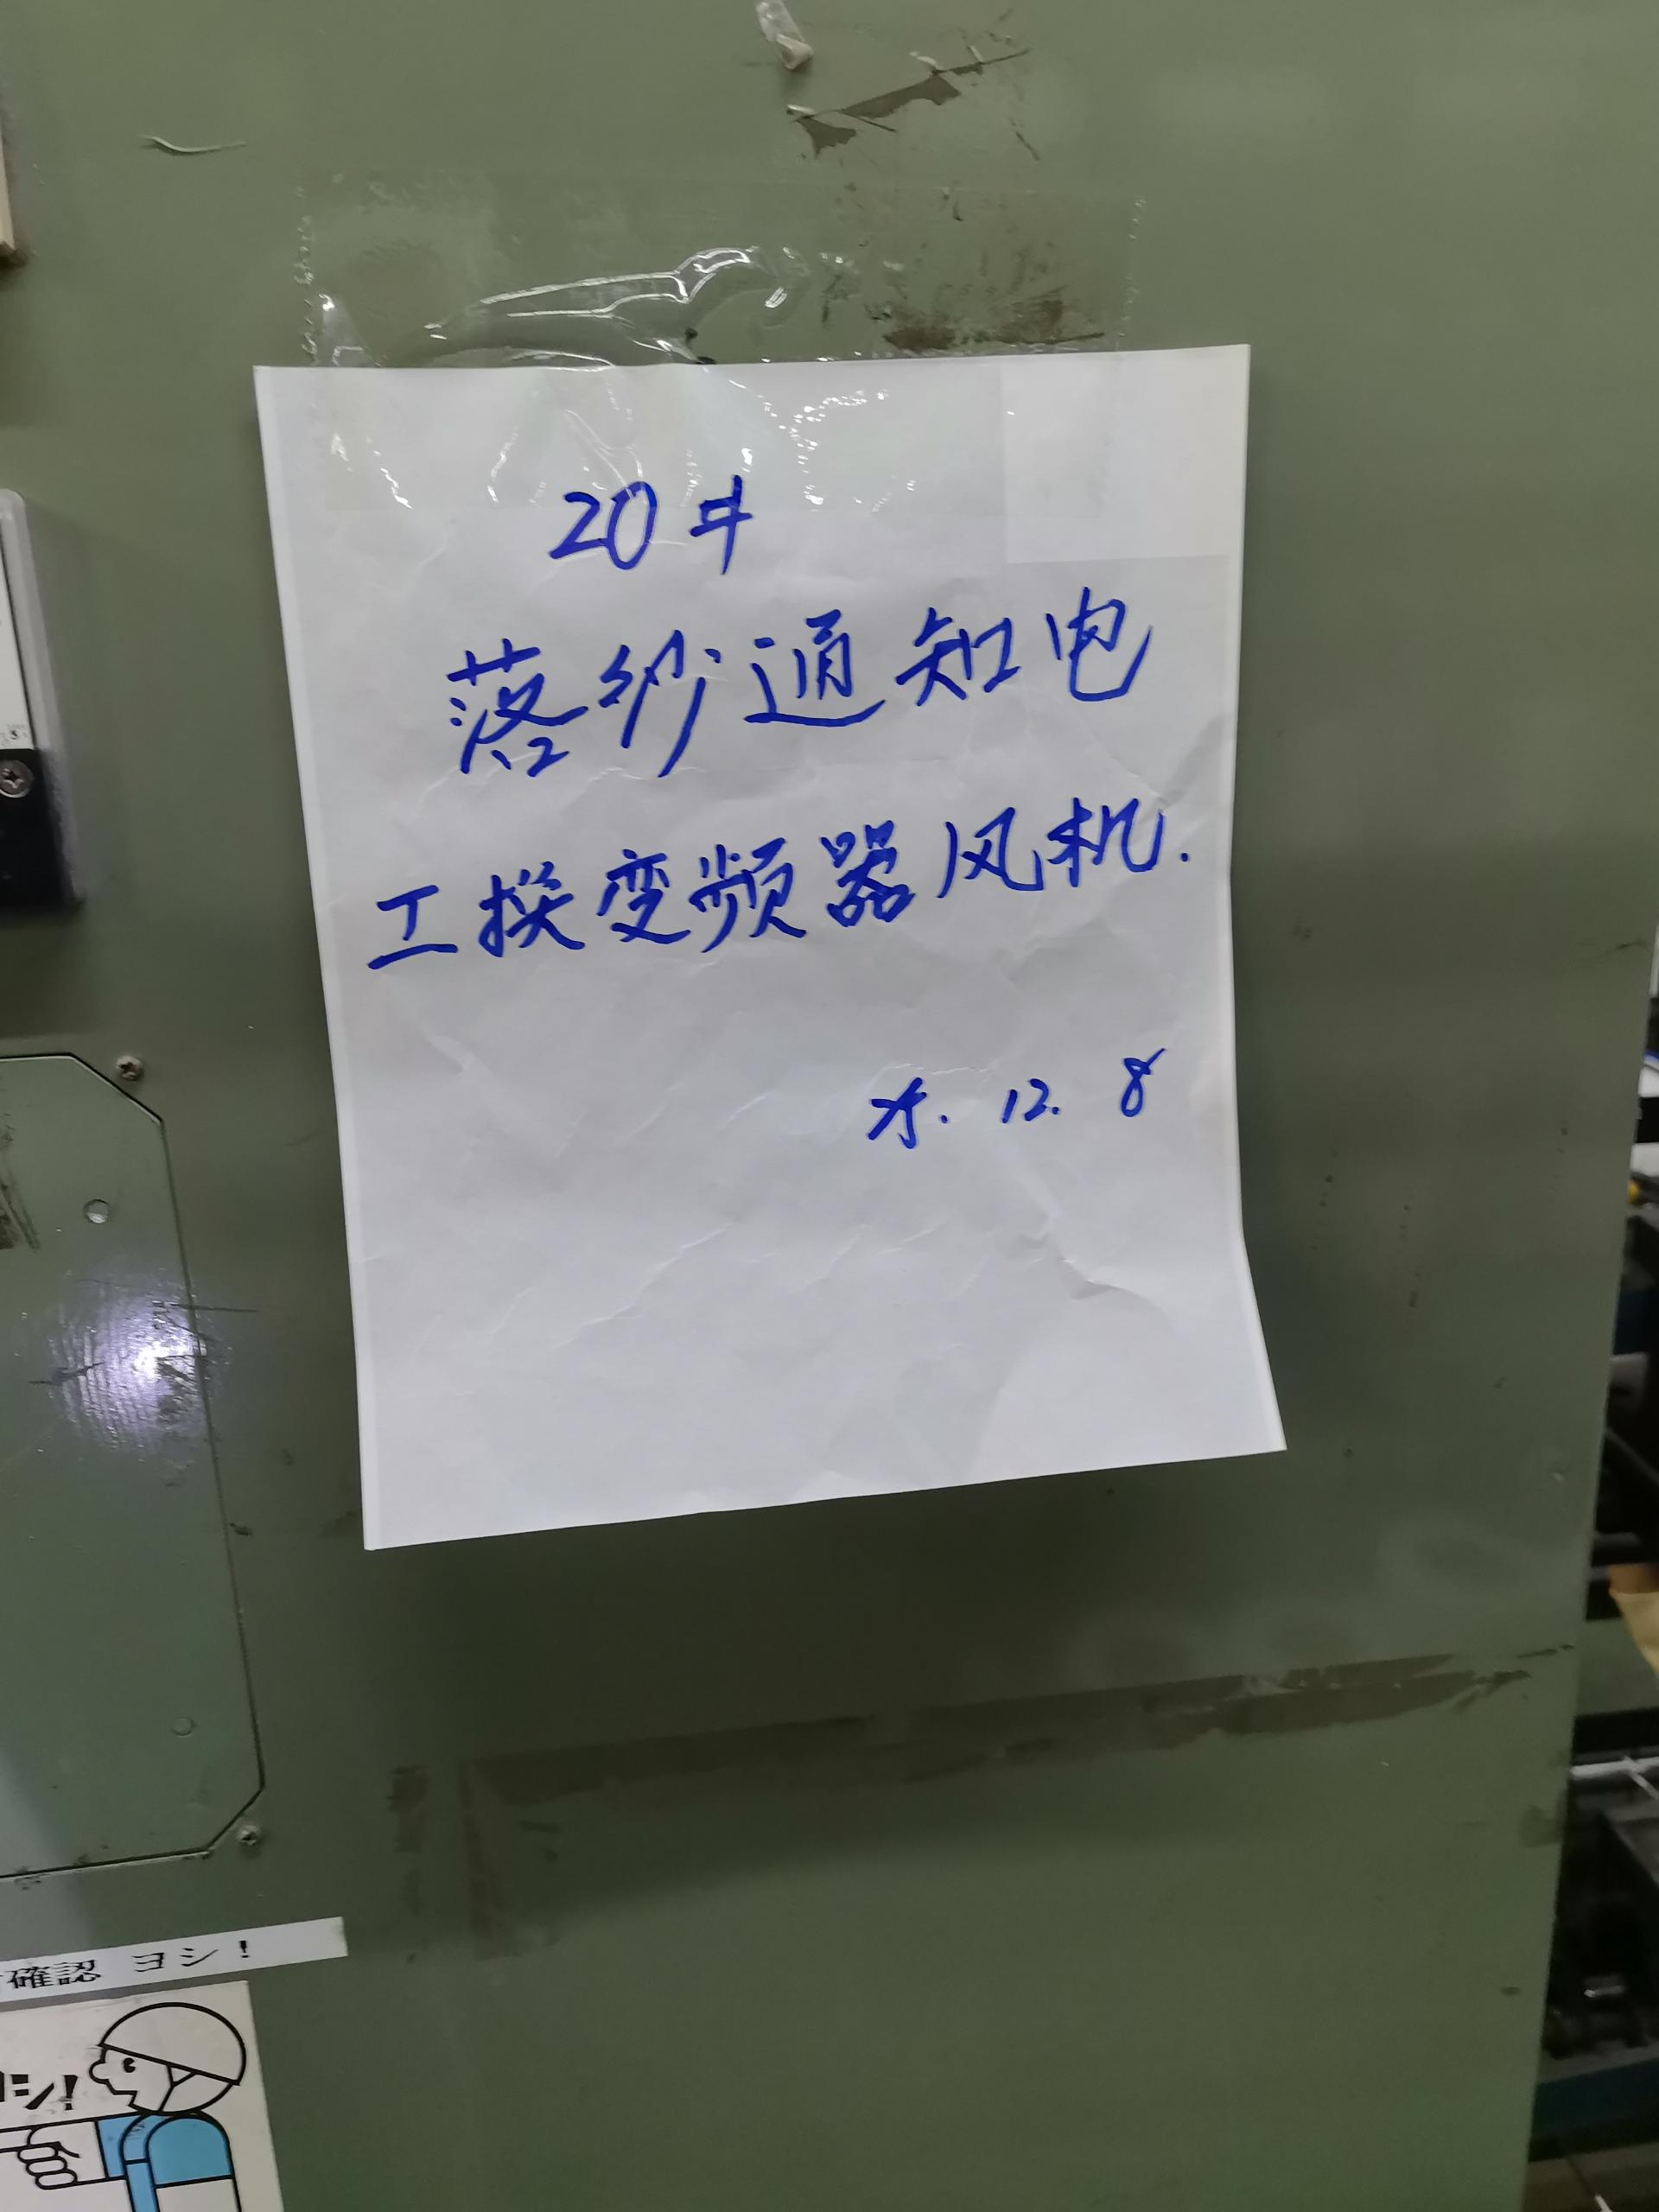 20#
落纱通知电
工换变频器风机.
12. 8
確認 ヨシ!
ヨシ!